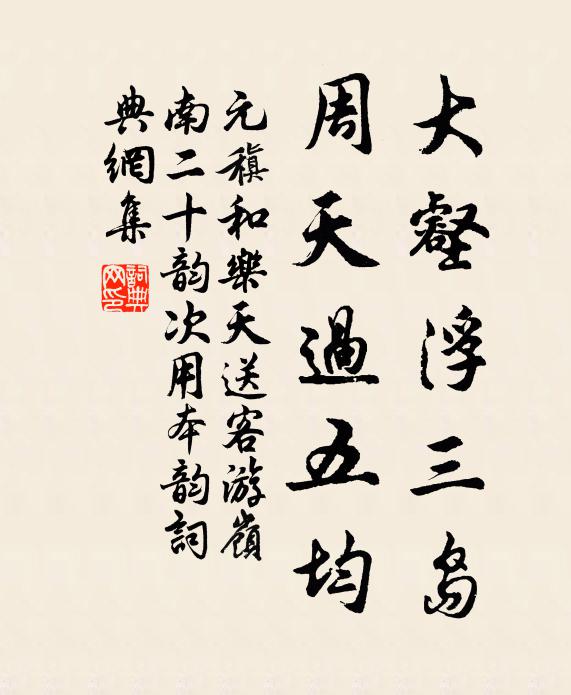 大壑浮三岛
周天過五均
元稹和樂天送客游嶺
南二十韵次用本韵詞
典網集
詞典網印